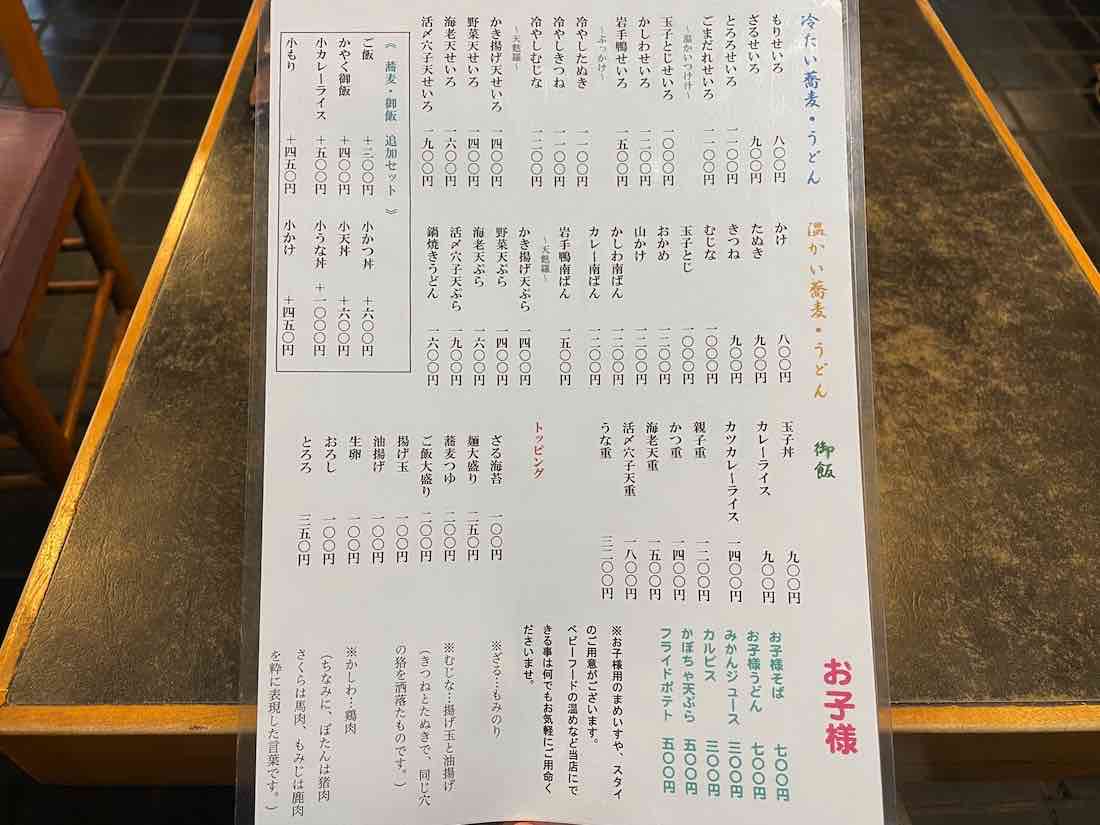 冷たい蕎麦・うどん
もりせいろ 八〇〇円
ざるせいろ 九〇〇円
とろろせいろ 一一〇〇円
ごまだれせいろ 一一〇〇円
~温かいつけ汁~
玉子とじせいろ 一〇〇〇円
かしわせいろ 一二〇〇円
岩手鴨せいろ 一五〇〇円
~ぶっかけ~
冷やしたぬき 一一〇〇円
冷やしきつね 一一〇〇円
冷やしむじな 一二〇〇円
~天麩羅~
かき揚げ天せいろ 一四〇〇円
野菜天せいろ 一四〇〇円
海老天せいろ 一六〇〇円
活〆穴子天せいろ 一九〇〇円
《 蕎麦・御飯 追加セット 》
ご飯 +三〇〇円
かやく御飯 +四〇〇円
小カレーライス +五〇〇円
小もり +四五〇円
小かつ丼 +六〇〇円
小天丼 +六〇〇円
小うな丼 +一〇〇〇円
小かけ +四五〇円
温かい蕎麦・うどん
かけ 八〇〇円
たぬき 九〇〇円
きつね 九〇〇円
むじな 一〇〇〇円
玉子とじ 一〇〇〇円
おかめ 一二〇〇円
山かけ 一二〇〇円
かしわ南ばん 一二〇〇円
カレー南ばん 一二〇〇円
岩手鴨南ばん 一五〇〇円
~天麩羅~
かき揚げ天ぷら 一四〇〇円
野菜天ぷら 一四〇〇円
海老天ぷら 一六〇〇円
活〆穴子天ぷら 一九〇〇円
鍋焼きうどん 一六〇〇円
御飯
玉子丼 九〇〇円
カレーライス 九〇〇円
カツカレーライス 一四〇〇円
親子重 一二〇〇円
かつ重 一四〇〇円
海老天重 一五〇〇円
活〆穴子天重 一八〇〇円
うな重 三二〇〇円
トッピング
ざる海苔 一〇〇円
麺大盛り 二五〇円
蕎麦つゆ 二〇〇円
ご飯大盛り 二〇〇円
揚げ玉 一〇〇円
油揚げ 一〇〇円
生卵 一〇〇円
おろし 一〇〇円
とろろ 三五〇円
お子様
お子様そば 七〇〇円
お子様うどん 七〇〇円
みかんジュース 三〇〇円
カルピス 三〇〇円
かぼちゃ天ぷら 五〇〇円
フライドポテト 五〇〇円
※お子様用のまめいすや、スタイ
のご用意がございます。
ベビーフードの温めなど当店にで
きる事は何でもお気軽にご用命く
ださいませ。
※ざる…もみのり
※むじな…揚げ玉と油揚げ
(きつねとたぬきで、同じ穴
の狢を洒落たものです。)
※かしわ…鶏肉
(ちなみに、ぼたんは猪肉
さくらは馬肉、もみじは鹿肉
を粋に表現した言葉です。)